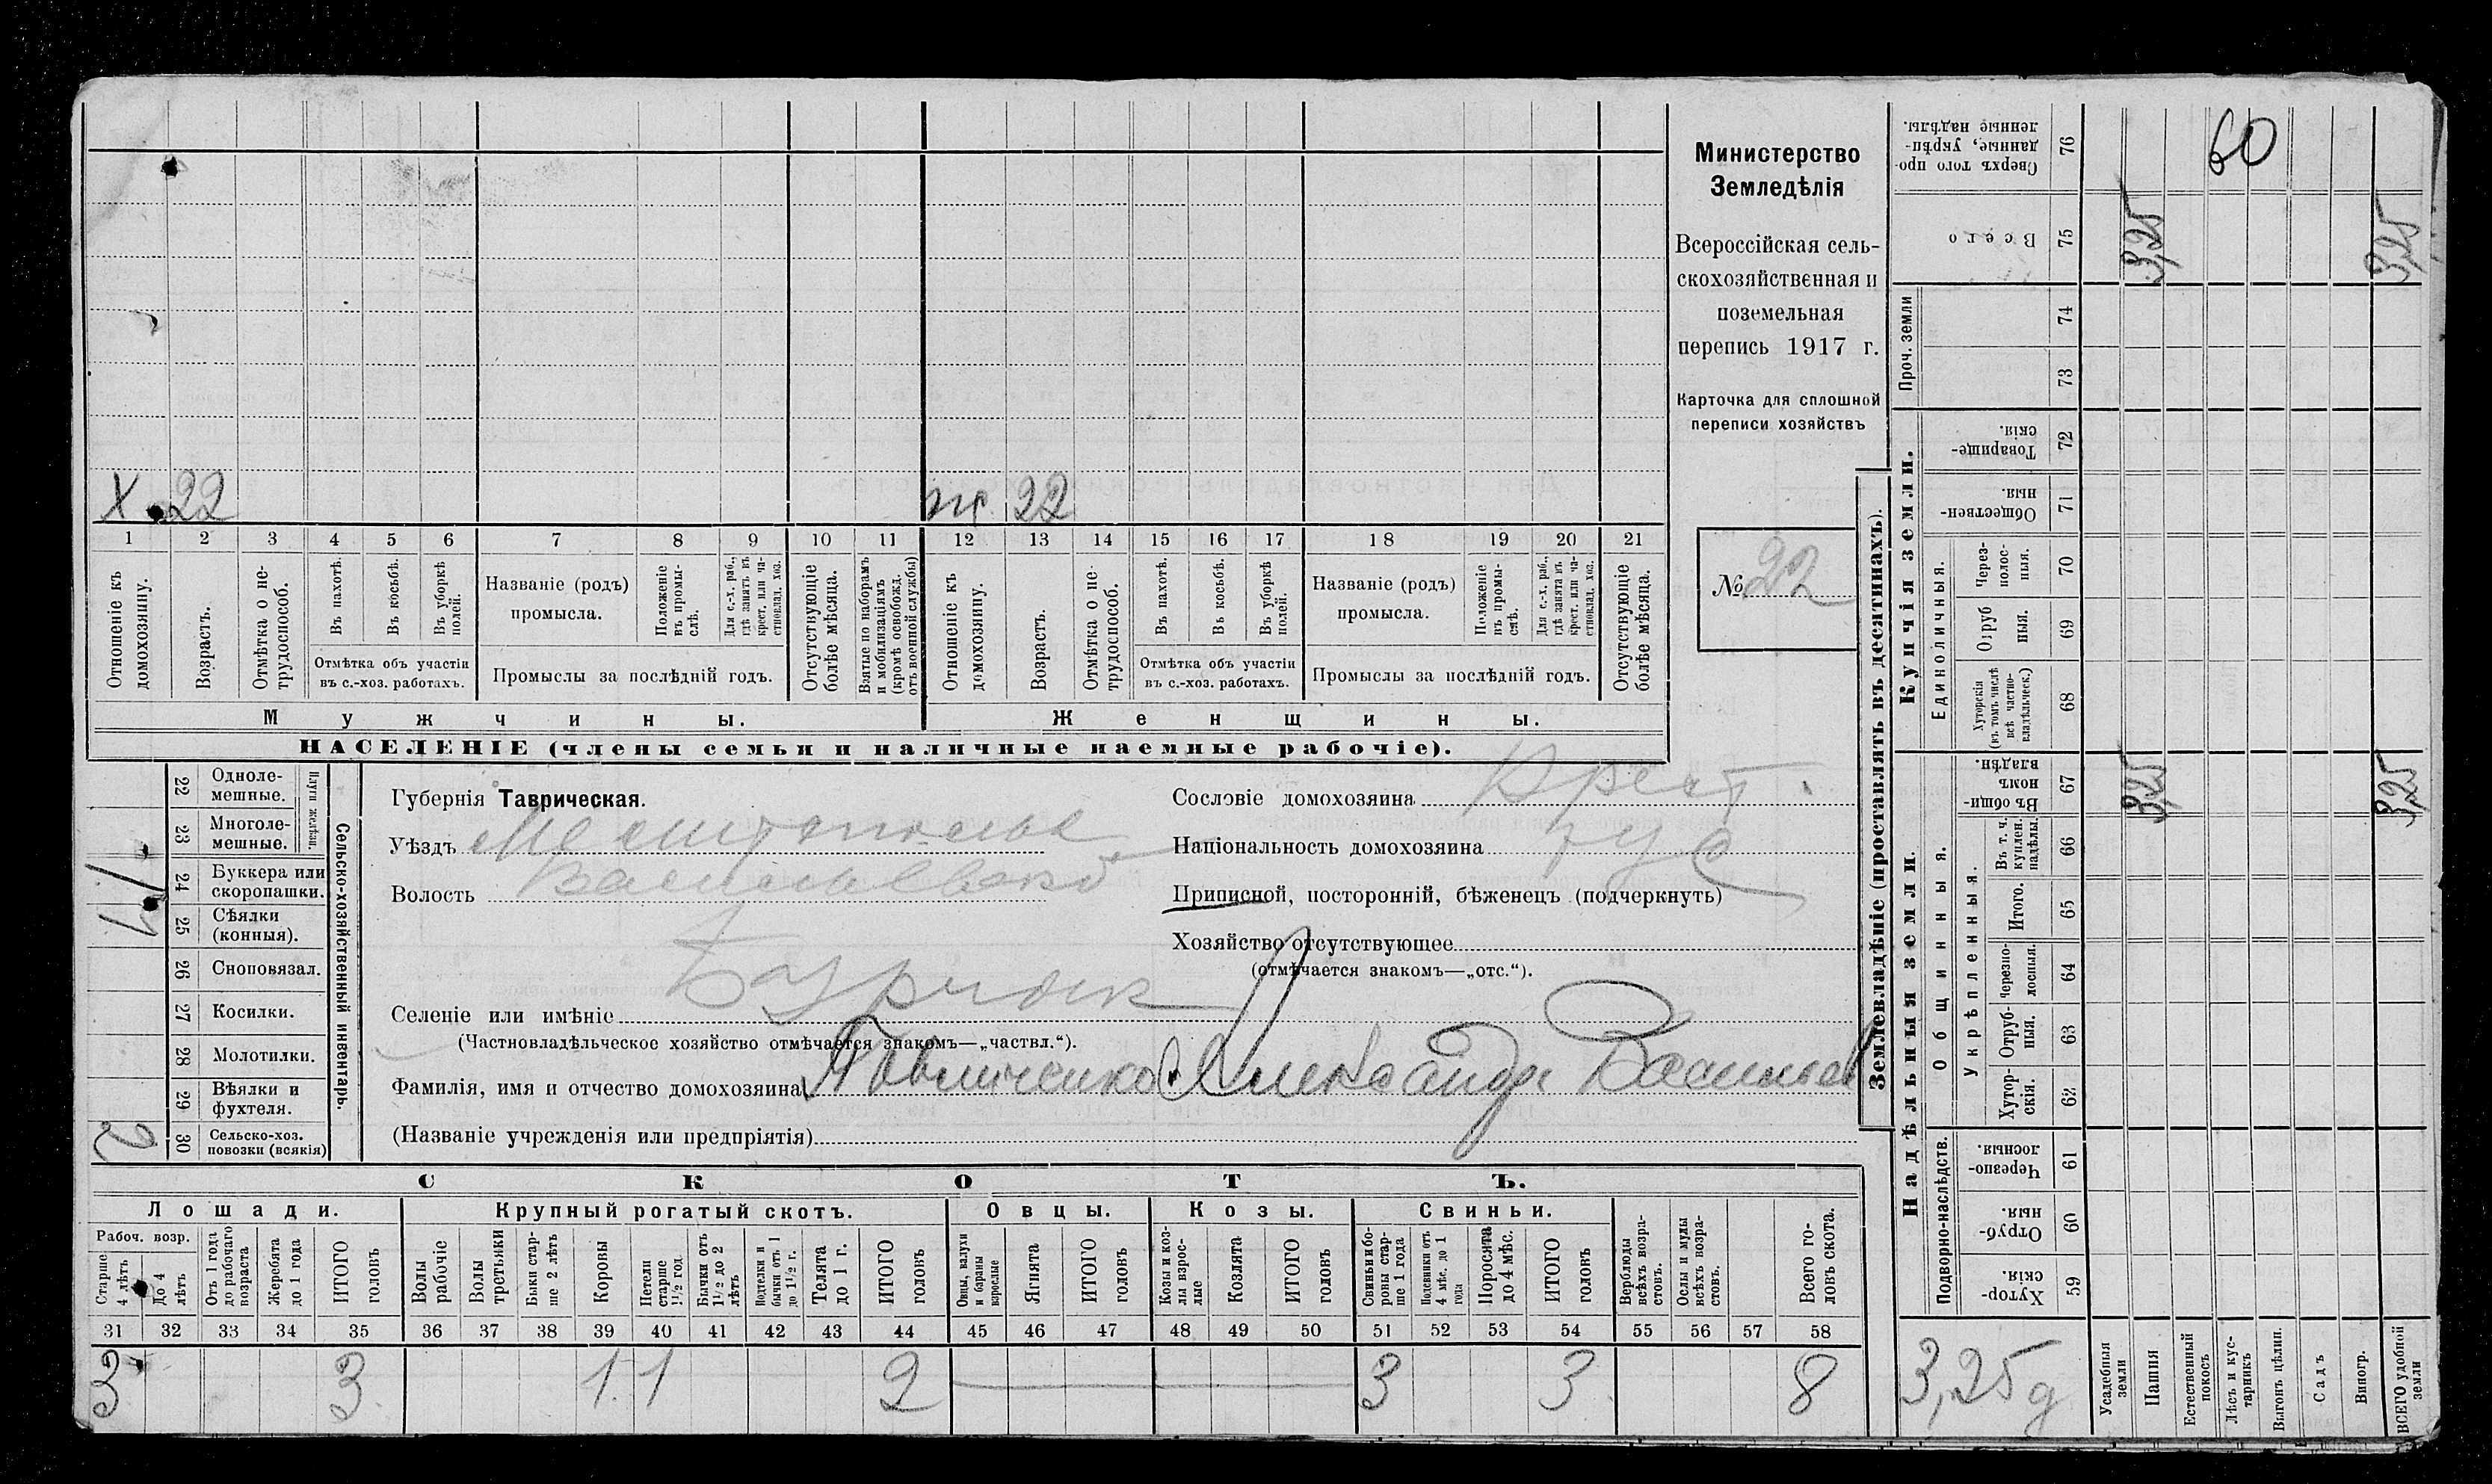 Министерство
Земледѣлія
Всероссійская сель-
скохозяйственная и
поземельная
перепись 1917 г.
Карточка для сплошной
переписи хозяйствъ
№ 22
X 22
ж 22
1 2 3 4 5 6 7 8 9 10 11 12 13 14 15 16 17 18 19 20 21
Отношеніе къ домохозяину.
Возрастъ.
Отмѣтка о не-трудоспособ.
Въ пахотѣ.
Въ косьбѣ.
Въ уборкѣ полей.
Отмѣтка объ участіи
въ с.-хоз. работахъ.
Названіе (родъ)
промысла.
Положеніе въ промы-слѣ.
Для с.-х. раб., гдѣ занятъ въ крест. или ча-стновлад. хоз.
Промыслы за послѣдній годъ.
Отсутствующіе болѣе мѣсяца.
Взятые по наборамъ и мобилизаціямъ (кромѣ освобожд. отъ военной службы)
Отношеніе къ домохозяину.
Возрастъ.
Отмѣтка о не-трудоспособ.
Въ пахотѣ.
Въ косьбѣ.
Въ уборкѣ полей.
Отмѣтка объ участіи
въ с.-хоз. работахъ.
Названіе (родъ)
промысла.
Положеніе въ промы-слѣ.
Для с.-х. раб., гдѣ занята въ крест. или ча-стновлад. хоз.
Промыслы за послѣдній годъ.
Отсутствующіе болѣе мѣсяца.
Мужчины.
Женщины.
НАСЕЛЕНІЕ (члены семьи и наличные наемные рабочіе).
22 Одноле-мешные.
23 Многоле-мешные.
Плуги желѣзн.
24 Буккера или скоропашки. 1
25 Сѣялки (конныя).
26 Сноповязал.
27 Косилки.
28 Молотилки.
29 Вѣялки и фухтеля.
30 Сельско-хоз. повозки (всякія) 2
Сельско-хозяйственный инвентарь.
Губернія Таврическая.
Уѣздъ
Волость
Селеніе или имѣніе
(Частновладѣльческое хозяйство отмѣчается знакомъ—„частвл.“).
Фамилія, имя и отчество домохозяина Александр
(Названіе учрежденія или предпріятія)
Сословіе домохозяина Крест.
Національность домохозяина рус
Приписной, посторонній, бѣженецъ (подчеркнуть)
Хозяйство отсутствующее
(отмѣчается знакомъ—„отс.“).
СКОТЪ.
Лошади. Крупный рогатый скотъ. Овцы. Козы. Свиньи.
Рабоч. возр.
Старше 4 лѣтъ
До 4 лѣтъ
Отъ 1 года до рабочаго возраста
Жеребята до 1 года
ИТОГО головъ
Волы рабочіе
Волы третьяки
Быки стар-ше 2 лѣтъ
Коровы
Нетели старше 1½ год.
Бычки отъ 1½ до 2 лѣтъ
Подтелки и бычки отъ 1 до 1½ г.
Телята до 1 г.
ИТОГО головъ
Овцы, валухи и бараны взрослые
Ягнята
ИТОГО головъ
Козы и коз-лы взрос-лые
Козлята
ИТОГО головъ
Свиньи и бо-ровы стар-ше 1 года
Подсвинки отъ 4 мѣс. до 1 года
Поросята до 4 мѣс.
ИТОГО головъ
Верблюды всѣхъ возра-стовъ.
Ослы и мулы всѣхъ возра-стовъ.
Всего го-ловъ скота.
31 32 33 34 35 36 37 38 39 40 41 42 43 44 45 46 47 48 49 50 51 52 53 54 55 56 57 58
3 3 1 1 2 3 3 8
Землевладѣніе (проставлять въ десятинахъ).
76 Сверхъ того про-данные, укрѣп-ленные надѣлы. 60
75 Всего 3,25 3,25
Проч. земли
74
73
Купчія земли.
72 Товарище-скія.
71 Обществен-ныя.
Единоличныя.
70 Через-полос-ныя.
69 Отруб ныя.
68 Хуторскія (въ томъ числѣ всѣ частно-владѣльческ.)
Надѣльныя земли.
Общинныя.
67 Въ общи-номъ владѣн. 3,25 3,25
Укрѣпленныя.
66 Въ т. ч. куплен. надѣлы.
65 Итого.
64 Черезпо-лосныя.
63 Отруб-ныя.
62 Хутор-скія.
Подворно-наслѣдств.
61 Черезпо-лосныя
60 Отруб-ныя.
59 Хутор-скія.
3,25 д
Усадебныя земли
Пашня
Естественный покосъ
Лѣсъ и кус-тарникъ
Выгонъ цѣлин.
Садъ
Виногр.
ВСЕГО удобной земли